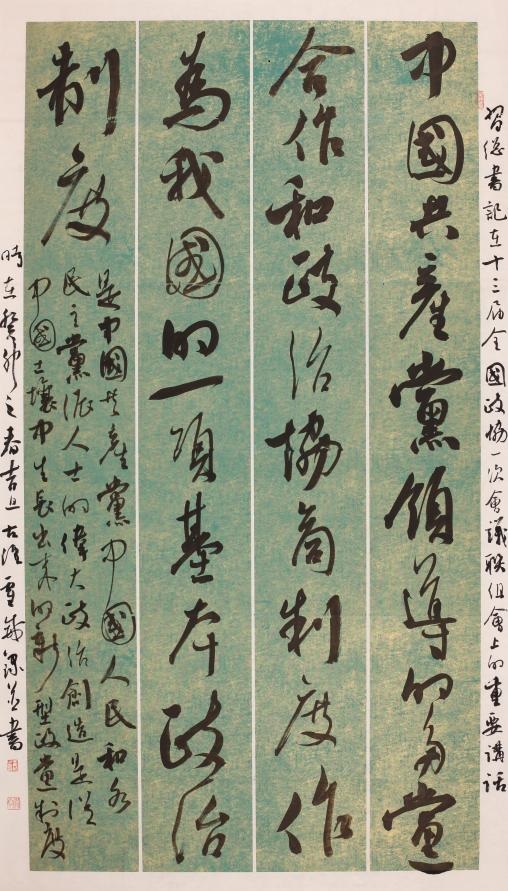 習總書記在十三屆全國政協一次會議聯組會上的重要講話
中國共產黨領導的多黨
合作和政治協商制度作
為我國的一項基本政治
制度
是中國共產黨中國人民和各
民主黨派人士的偉大政治創造是從
中國土壤中生長出來的新型政黨制度
時在癸卯之春吉旦古淮雪城
書